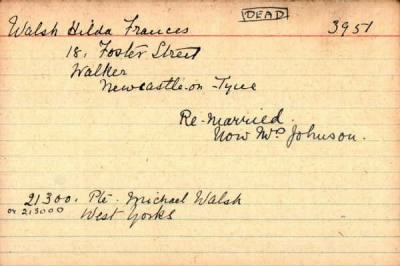 DEAD
Walsh Hilda Frances 3951
18, Foster Street
Walker
Newcastle-on-Tyne
Re-married.
Now Mrs Johnson.
21300. Pte. Michael Walsh
or 213000 West Yorks